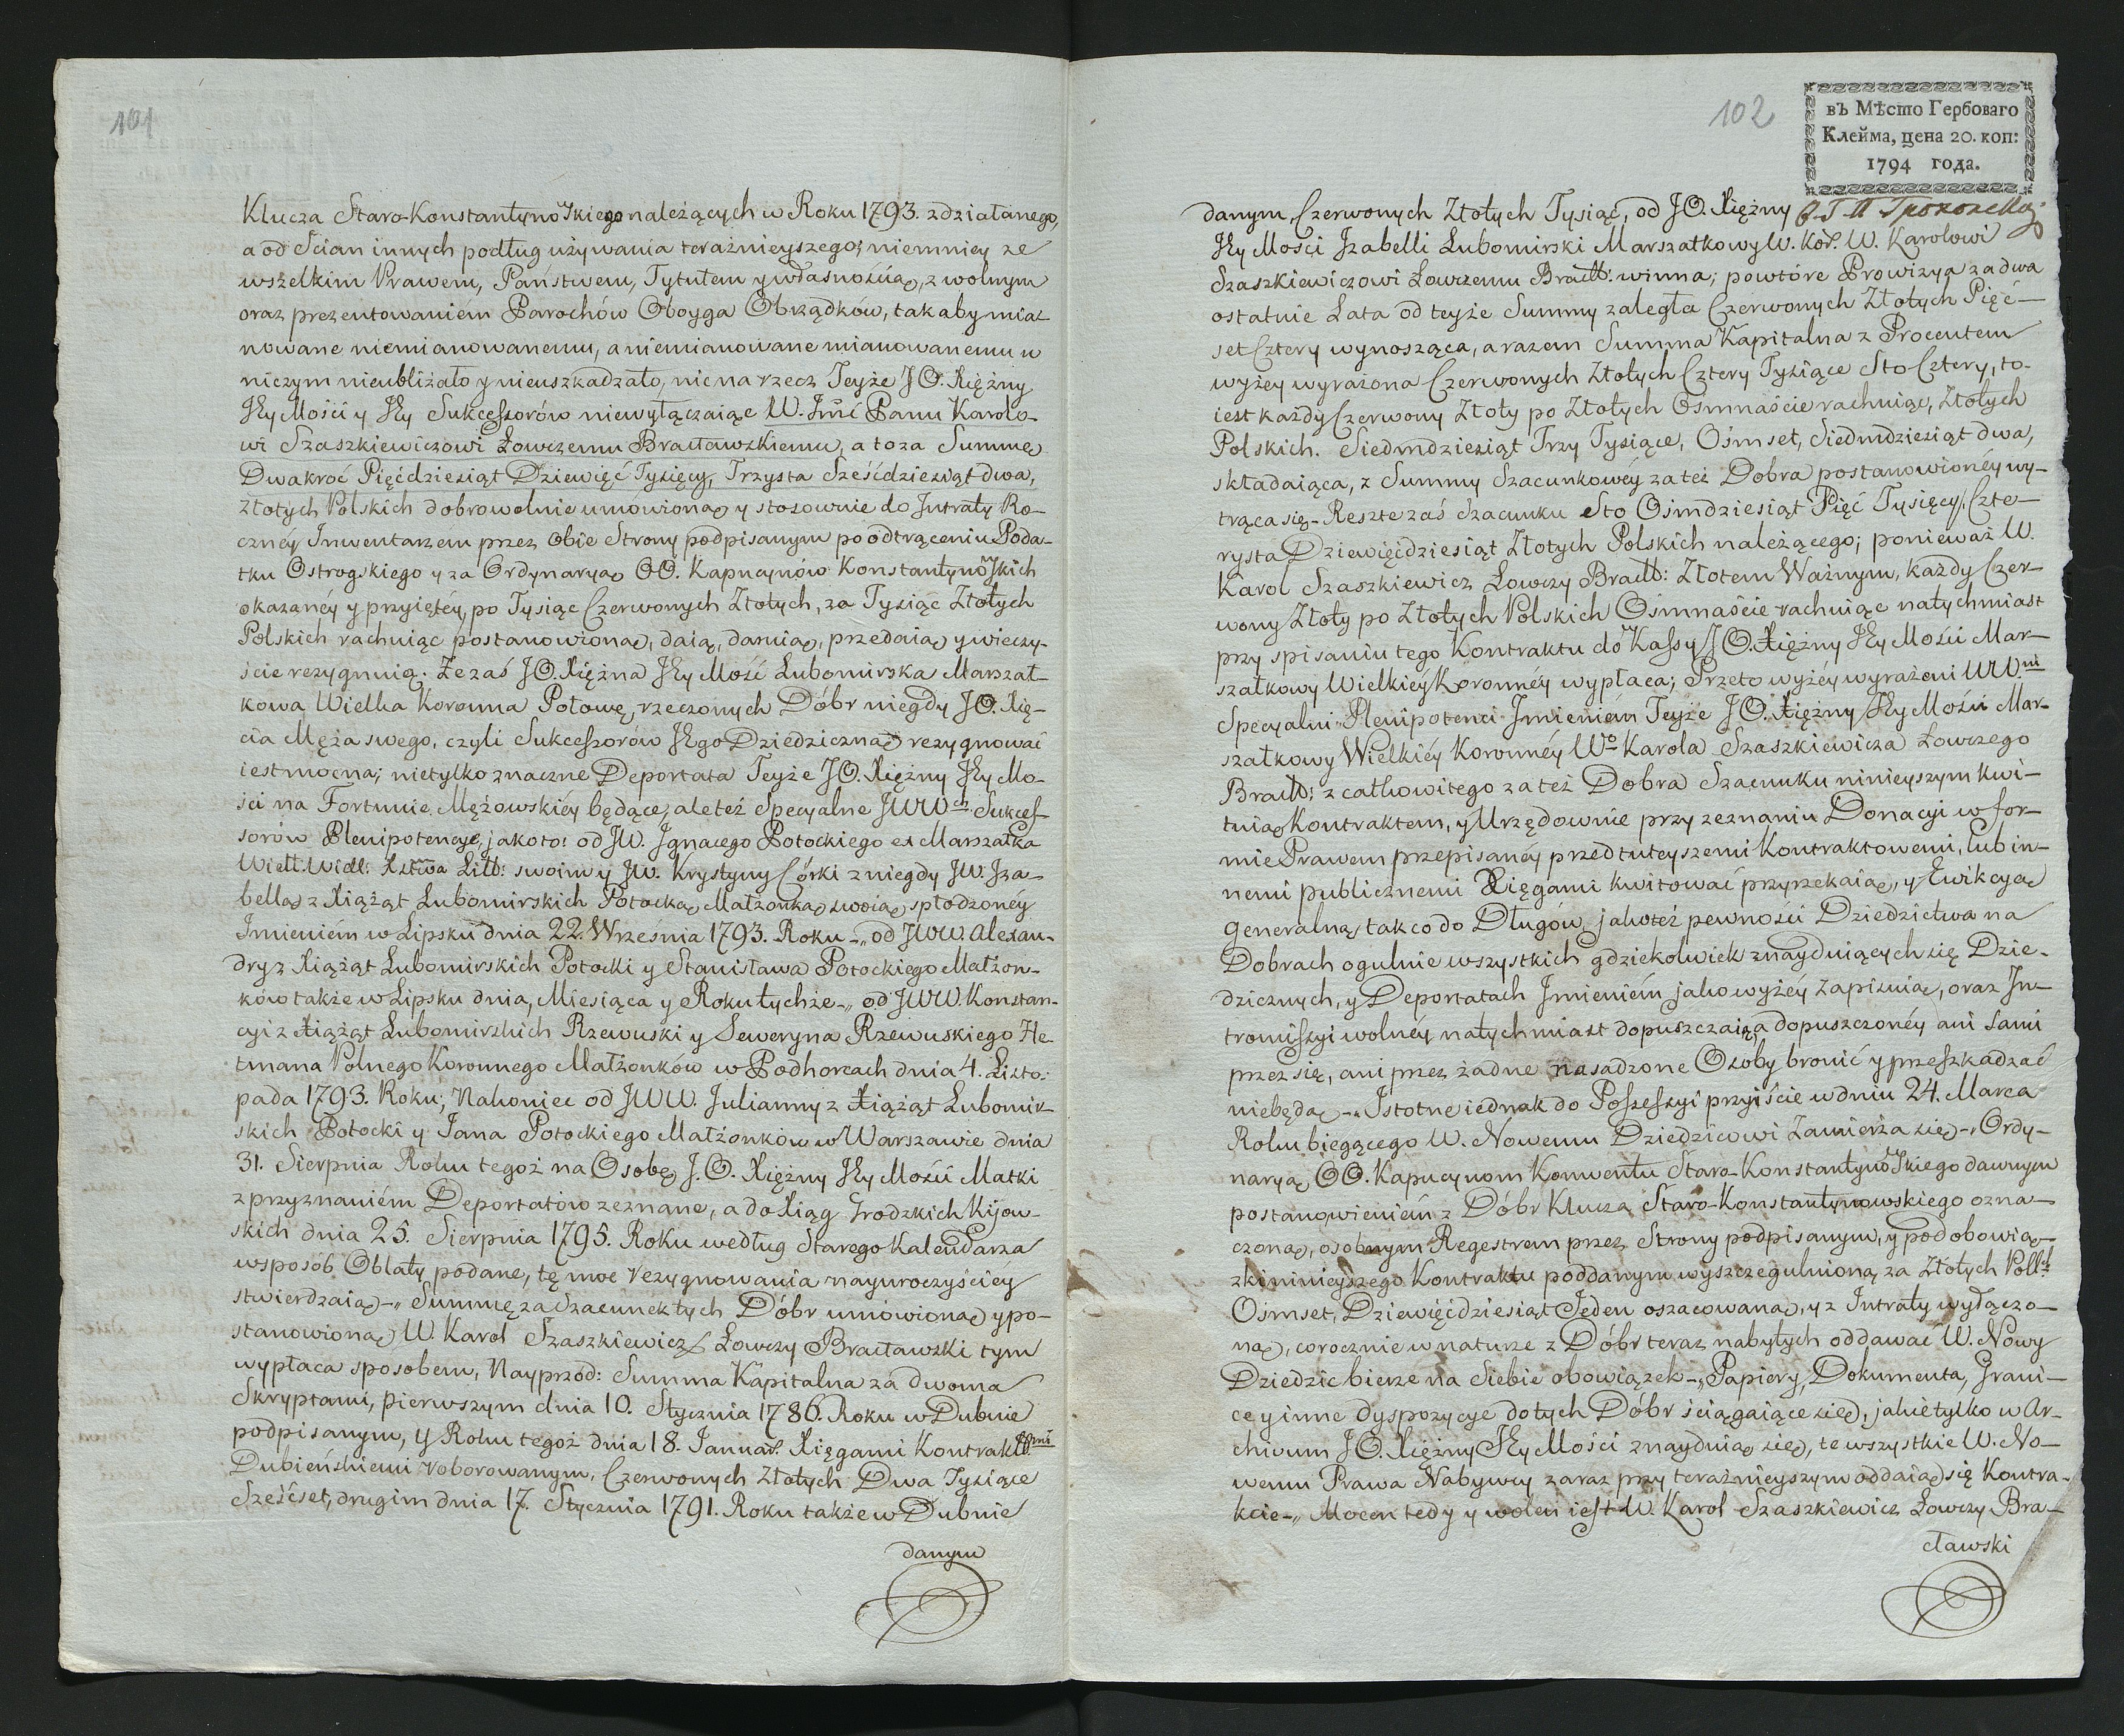 101
Klucza Staro-Konstantynowskiego należących w Roku 1793. zdziałanego,
a od Ścian innych podług używania teraźnieyszego; niemniey ze
wszelkim Prawem, Państwem, Tytułem y własnością, z wolnym
oraz prezentowaniém Parochów Oboyga Obrządków, tak aby mia-
nowane niemianowanemu, a niemianowane mianowanemu w
niczym nieubliżało y nieuszkadzało, nic na rzecz Teyże J.O. Xiężny
JEy Mości y JEy Sukcessorów niewyłączaiąc W. Jmć Panu Karolo-
wi Szaszkiewiczowi Łowczemu Bracławskiemu, a to za Summę
Dwakroć Pięćdziesiąt Dziewięć Tysięcy, Trzysta Sześćdziesiąt dwa,
złotych Polskich dobrowolnie umówioną y stosownie do Intraty Ro-
cznéy Inwentarzem przez obie Strony podpisanym po odtrąceniu Poda-
tku Ostrogskiego y za Ordynaryą OO. Kapucynów Konstantynowskich
okazanéy y przyiętéy, po Tysiąc Czerwonych Złotych, za Tysiąc Złotych
Polskich rachuiąc postanowioną, daią, daruią, przedaią y wieczy-
ście rezygnuią. Że zaś J.O. Xiężna JEy Mość Lubomirska Marszał-
kowa Wielka Koronna Połowę, rzeczonych Dóbr niegdy J.O. Xię-
cia Męża swego, czyli Sukcessorów JEgo Dziedziczną rezygnować
iest mocna; nietylko znaczne Deportata Teyże J.O. Xiężny JEy Mo-
ści na Fortunie Mężowskiéy będące, ale też Specyalne JWWch Sukces-
sorów Plenipotencye, jako to: od JW. Ignacego Potockiego ex Marszałka
Wiell. Widl: Xztwa Litt: swoim y JW. Krystyny Córki z niegdy JW. Iza-
bellą z Xiążąt Lubomirskich Potocką Małżonką swoią spłodzonéy
Imieniém w Lipsku dnia 22. Września 1793. Roku -„ od JWW. Alexan-
dry z Xiążąt Lubomirskich Potocki y Stanisława Potockiego Małżon-
ków także w Lipsku dnia, Miesiąca y Roku tychże -„ od JWW. Konstan-
cyi z Xiążąt Lubomirskich Rzewuski y Seweryna Rzewuskiego He-
tmana Polnego Koronnego Małżonków w Podhorcach dnia 4. Listo-
pada 1793. Roku; Nakoniec od JWW. Julianny z Xiążąt Lubomir-
skich Potocki y Jana Potockiego Małżonków w Warszawie dnia
31. Sierpnia Roku tegoż na Osobę J.O. Xiężny JEy Mości Matki
z przyznaniém Deportatów zeznane, a do Xiąg Grodzkich Kijow-
skich dnia 25. Sierpnia 1795. Roku według Starego Kalendarza
w sposób Oblaty podane, tę moc rezygnowania nayuroczyściéy
stwierdzaią -„ Summę za Szacunek tych Dóbr umówioną y po-
stanowioną W. Karol Szaszkiewicz Łowczy Bracławski tym
wypłaca sposobem, Nayprzód: Summa Kapitalna za dwoma
Skryptami, pierwszym dnia 10. Stycznia 1786. Roku w Dubnie
podpisanym, y Roku tegoż dnia 18. Januar. Xięgami Kontraktt.mi
Dubieńskiemi roborowanym, Czerwonych Złotych Dwa Tysiące
Sześćset, drugim dnia 17. Stycznia 1791. Roku także w Dubnie
danym
102
въ Мѣсто Гербоваго
Клейма, цена 20. коп:
1794 года.
danym, Czerwonych Złotych Tysiąc, od J.O. Xiężny
JEy Mości Izabelli Lubomirski Marszałkowy W. Kor. W. Karolowi
Szaszkiewiczowi Łowczemu Bractt: winna; powtóre Prowizya za dwa
ostatnie Lata od teyże Summy zaległa Czerwonych Złotych Pięć-
set Cztery wynosząca, a razem Summa Kapitalna z Procentem
wyżey wyrażona Czerwonych Złotych Cztery Tysiące Sto Cztery, to
iest każdy Czerwony Złoty po Złotych Osmnaście rachuiąc, Złotych
Polskich. Siedmdziesiąt Trzy Tysiące, Ośmset, Siedmdziesiąt dwa,
składaiąca, z Summy Szacunkowéy za też Dobra postanowionéy wy-
trąca się - Resztę zaś Szacunku Sto Ośmdziesiąt Pięć Tysięcy, Czte-
rysta Dziewięćdziesiąt Złotych Polskich należącego; ponieważ W.
Karol Szaszkiewicz Łowczy Bractt: Złotem Ważnym, każdy Czer-
wony Złoty po Złotych Polskich Ośmnaście rachuiąc natychmiast
przy spisaniu tego Kontraktu do Kassy J.O. Xiężny JEy Mości Mar-
szałkowy Wielkiéy Koronnéy wypłaca; Przeto wyżéy wyrażeni WWni
Specyalni Plenipotenci Imieniém Teyże J.O. Xiężny JEy Mości Mar-
szałkowy Wielkiéy Koronnéy Wo Karola Szaszkiewicza Łowczego
Bractt: z całkowitego za też Dobra Szacunku ninieyszym kwi-
tuią Kontraktem, y Urzędownie przy zeznaniu Donacyi w for-
mie Prawem przepisanéy przed tuteyszemi Kontraktowemi, lub in-
nemi publicznemi Xięgami kwitować przyrzekaią, y Ewikcyą
generalną tak co do Długów, jako też pewności Dziedzictwa na
Dobrach ogulnie wszystkich gdziekolwiek znayduiących się Dzie-
dzicznych, y Deportatach Imieniém jako wyżéy zapisuią, oraz In-
tromissyi wolnéy natychmiast dopuszczaią, a dopuszczonéy ani sami
przez się, ani przez żadne nasadzone Osoby bronić y przeszkadzać
niebędą -„ Istotne iednak do Possessyi przyiście w dniu 24. Marca
Roku biegącego W. Nowemu Dziedzicowi zamierza się -„ Ordy-
naryą OO. Kapucynom Konwentu Staro-Konstantynowskiego dawnym
postanowieniém z Dóbr Klucza Staro-Konstantynowskiego ozna-
czoną, osobnym Regestrem przez Strony podpisanym, y pod obowią-
zki ninieyszego Kontraktu poddanym wyszczegulnioną za Złotych Poll.ch
Ośmset, Dziewięćdziesiąt Jeden oszacowaną, y z Intraty wyłączo-
ną, corocznie w naturze z Dóbr teraz nabytych oddawać W. Nowy
Dziedzic bierze na Siebie obowiązek -„ Papiery, Dokumenta, Grani-
ce y inne dyspozycye do tych Dóbr ściągaiące się, jakie tylko w Ar-
chivum J.O. Xiężny JEy Mości znayduią się, te wszystkie W. No-
wemu Prawa Nabywcy zaraz przy teraźnieyszym oddaią się Kontra-
kcie -„ Mocen tedy y wolen iest W. Karol Szaszkiewicz Łowczy Bra-
cławski